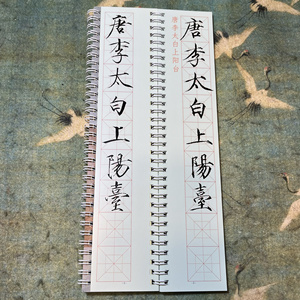 唐李太白上陽臺
唐李太白上阳台
唐李太白上陽臺